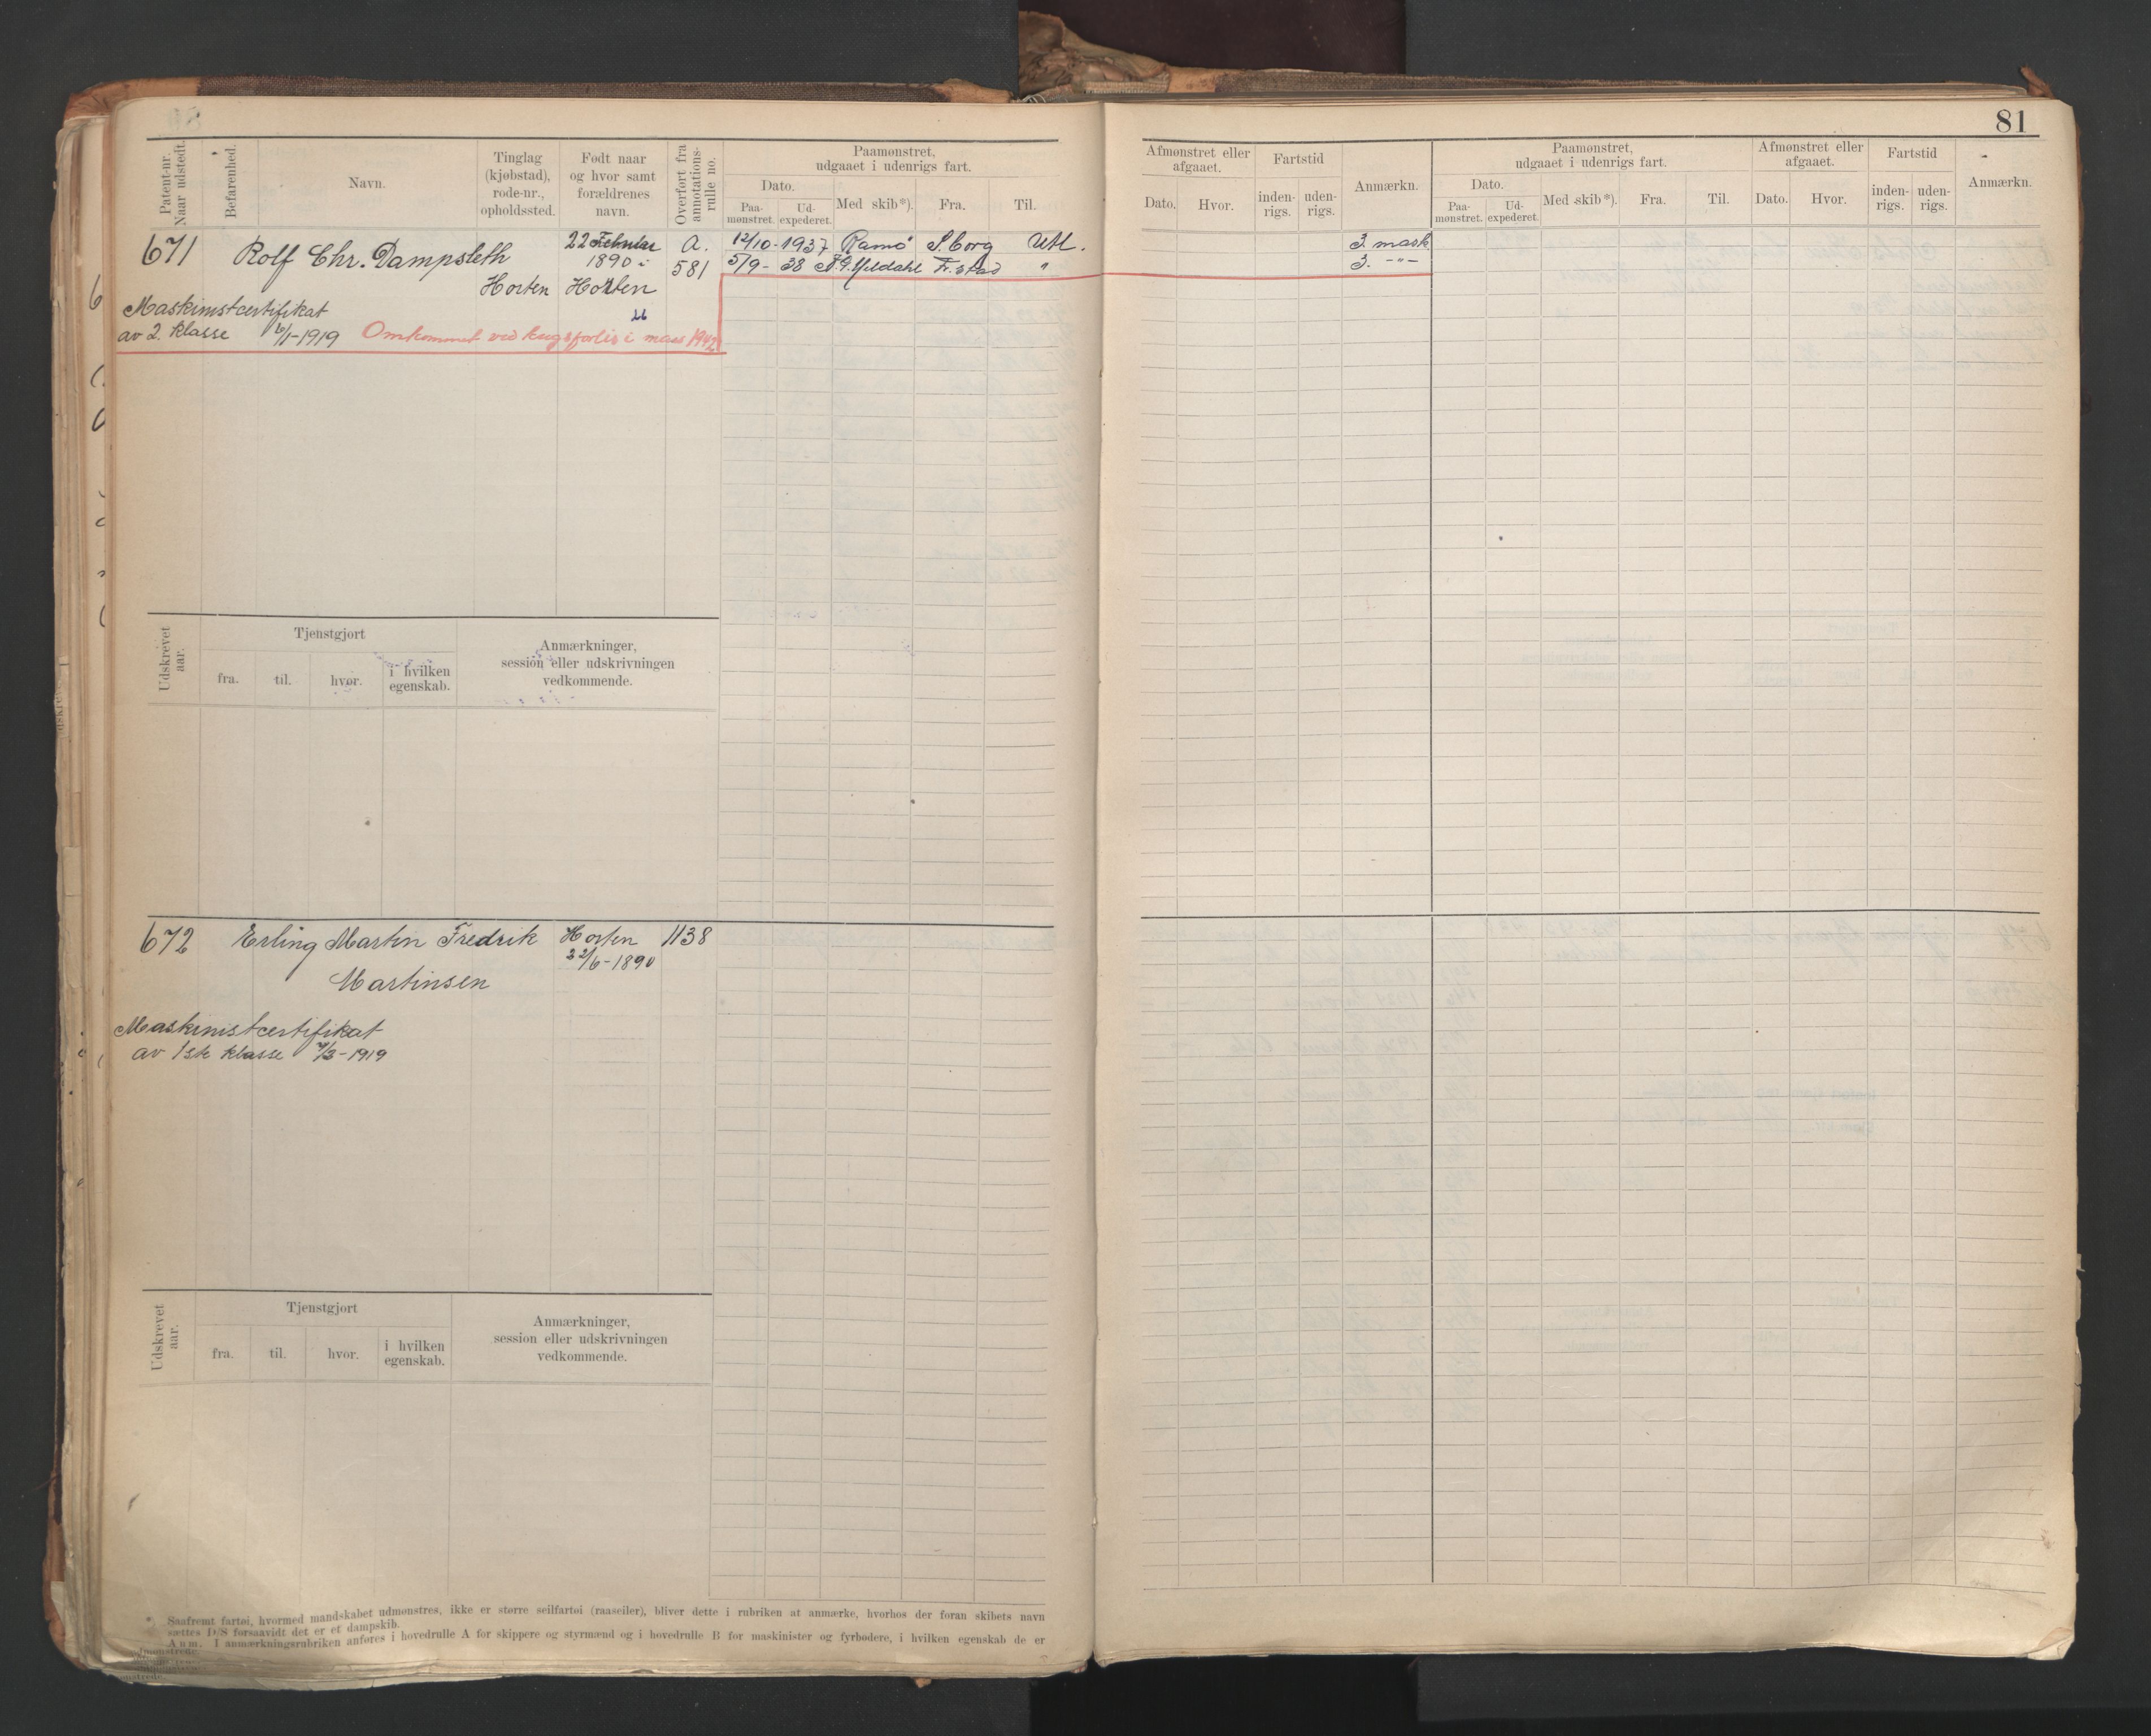 81
Patent-nr. Naar udstedt.
Befarenhed.
Navn.
Tinglag (kjøbstad), rode-nr., opholdssted.
Født naar og hvor samt forældrenes navn.
Overført fra annotations-rulle no.
Paamønstret, udgaaet i udenrigs fart.
Dato.
Paa-mønstret.
Ud-expederet.
Med skib*).
Fra.
Til.
Afmønstret eller afgaaet.
Dato.
Hvor.
Fartstid
inden-rigs.
uden-rigs.
Anmærkn.
Paamønstret, udgaaet i udenrigs fart.
Dato.
Paa-mønstret.
Ud-expederet.
Med skib*).
Fra.
Til.
Afmønstret eller afgaaet.
Dato.
Hvor.
Fartstid
inden-rigs.
uden-rigs.
Anmærkn.
671 Rolf Chr. Dampsleth
Horten
22 Februar
1890 i
Horten
A.
581
12/10-1937 Ramø S.borg Utl. 3. mask
5/9-38 Meldahl F.stad " 3. -"-
Maskinistcertifikat
av 2. klasse 6/1-1919
Omkommet ved krigsforlis i mars 1942
Udskrevet aar.
Tjenstgjort
fra.
til.
hvor.
i hvilken egenskab.
Anmærkninger, session eller udskrivningen vedkommende.
672 Erling Martin Fredrik Horten 1138
22/6-1890
Martinsen
Maskinistcertifikat
av 1ste klasse /3-1919
Udskrevet aar.
Tjenstgjort
fra.
til.
hvor.
i hvilken egenskab.
Anmærkninger, session eller udskrivningen vedkommende.
* Saafremt fartøi, hvormed mandskabet udmønstres, ikke er større seilfartøi (raaseiler), bliver dette i rubriken at anmærke, hvorhos der foran skibets navn
sættes D/S forsaavidt det er et dampskib.
Anm. I anmærkningsrubriken anføres i hovedrulle A for skippere og styrmænd og i hovedrulle B for maskinister og fyrbødere, i hvilken egenskab de er
udmønstrede.